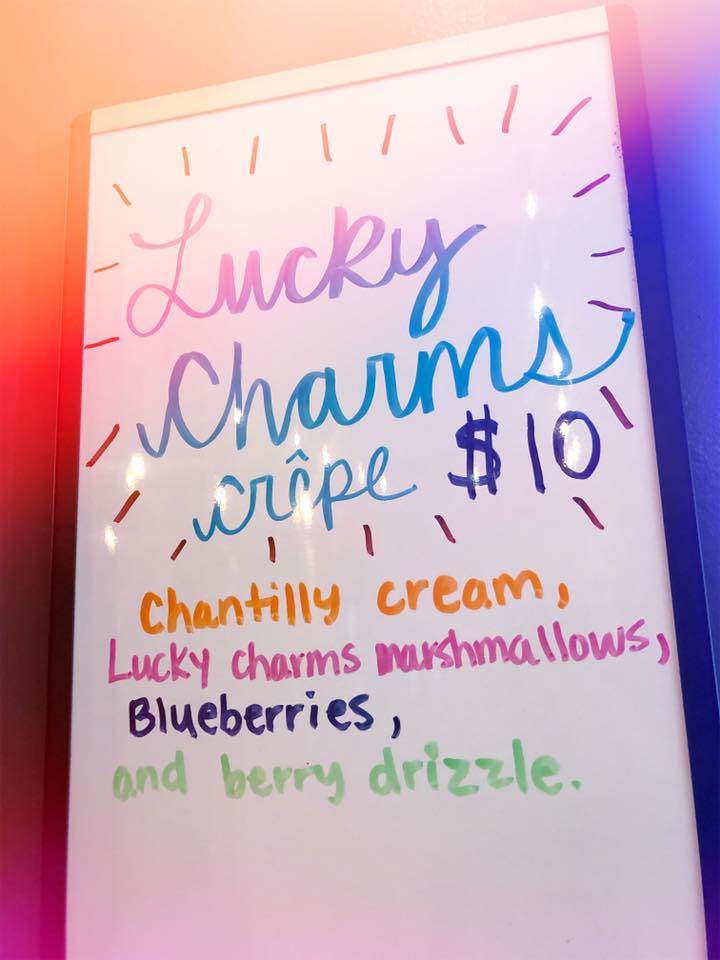 Lucky
Charms
crêpe $10
Chantilly cream,
Lucky charms marshmallows,
Blueberries,
and berry drizzle.